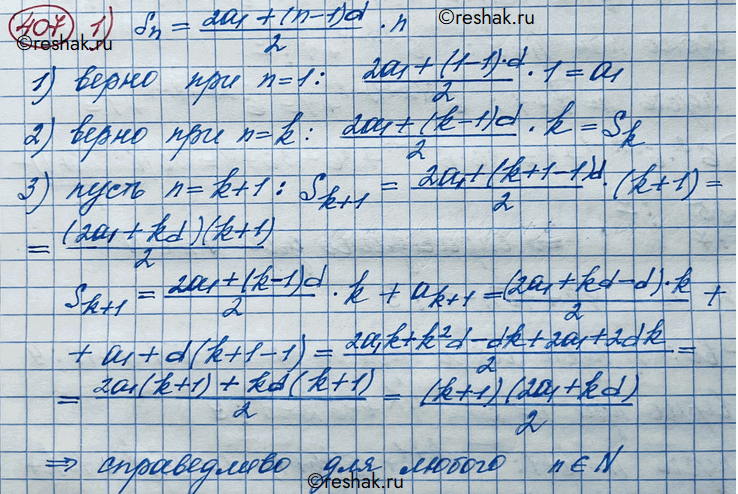 407 1) Sn = (2a₁ + (n-1)d)/2 · n
©reshak.ru
1) верно при n=1: (2a₁ + (1-1)·d)/2 · 1 = a₁
2) верно при n=k: (2a₁ + (k-1)d)/2 · k = Sk
3) пусть n=k+1: Sk+1 = (2a₁ + (k+1-1)d)/2 · (k+1) =
= (2a₁ + kd)(k+1)/2
Sk+1 = (2a₁ + (k-1)d)/2 · k + ak+1 = (2a₁ + kd - d)·k/2 +
+ a₁ + d(k+1-1) = (2a₁k + k²d - dk + 2a₁ + 2dk)/2 =
= (2a₁(k+1) + kd(k+1))/2 = (k+1)(2a₁ + kd)/2
⇒ справедливо для любого n∈N
©reshak.ru